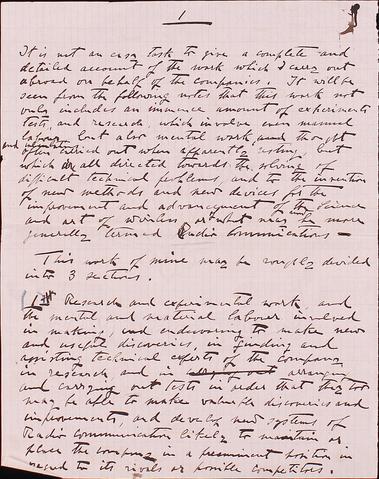 1
It is not an easy task to give a complete and
detailed account of the work which I carry out
abroad on behalf of the companies. It will be
seen from the following notes that this work not
only includes an immense amount of experiments
tests and research, which involve even manual
labour, but also mental work, and thought
and calculations
often carried out when apparently resting, but
which is all directed towards the solving of
difficult technical problems, and to the invention
of new methods and new devices for the
improvement and advancement of the science
and art of wireless or what may be more
generally termed Radio Communications —
This work of mine may be roughly divided
into 3 sections.
(1) Research and experimental work, and
the mental and material labour involved
in making, and endeavouring to make new
and useful discoveries, in guiding and
assisting technical experts of the Company
in research and in arranging
and carrying out tests in order that they too
may be able to make valuable discoveries and
improvements, and develop new systems of
Radio Communication likely to maintain or
place the company in a prominent position in
regard to its rivals or possible competitors.